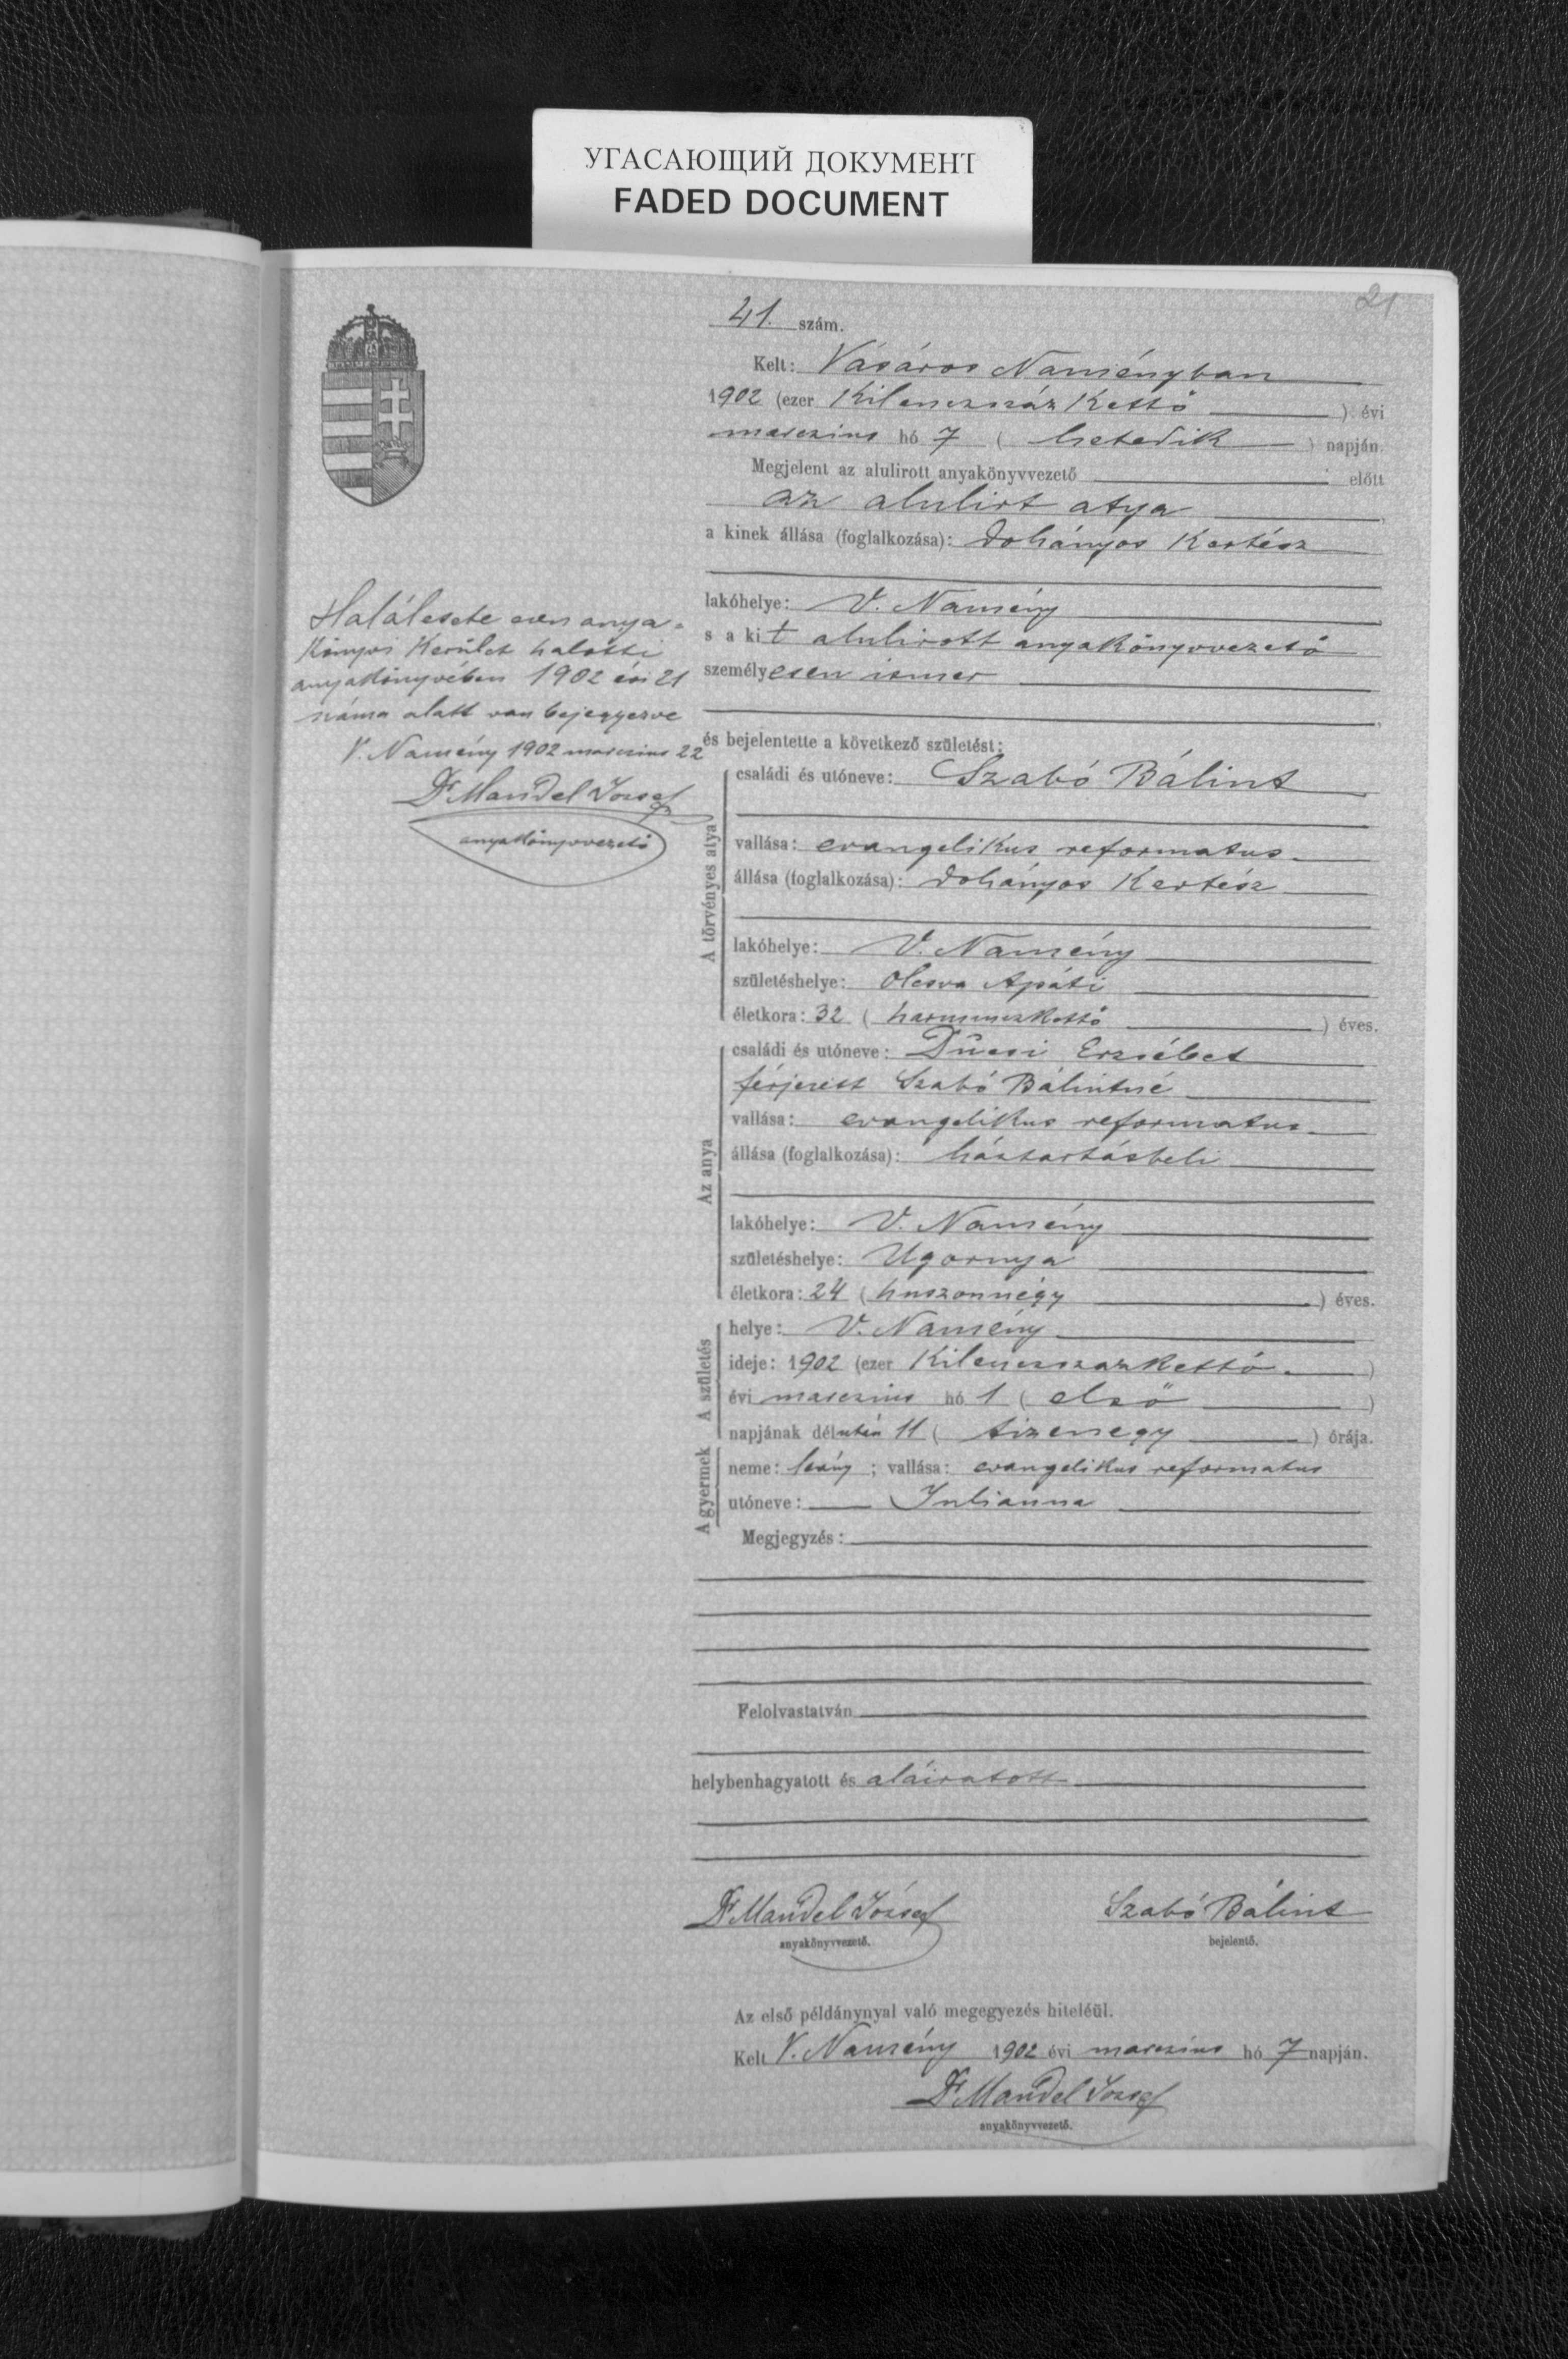 УГАСАЮЩИЙ ДОКУМЕНТ
FADED DOCUMENT
21
41. szám.
Kelt: Vásáros Naményban
1902 (ezer Kilenczszáz Kettő) évi
marczius hó 7 (hetedik) napján.
Megjelent az alulirott anyakönyvvezető előtt
az alulirt atya,
a kinek állása (foglalkozása): dohányos Kertész
lakóhelye: V. Namény,
s a kit alulirott anyakönyvvezető
személyesen ismer,
és bejelentette a következő születést:
Halálesete ezen anya-
könyvi Kerület halotti
anyakönyvében 1902 évi 21
száma alatt van bejegyezve
V. Namény 1902 marczius 22
Dr Mandel József
anyakönyvvezető
A törvényes atya
családi és utóneve: Szabó Bálint
vallása: evangelikus reformatus.
állása (foglalkozása): dohányos Kertész
lakóhelye: V. Namény
születéshelye: Olcsva Apáti
életkora: 32 (harminczkettő) éves.
Az anya
családi és utóneve: Dûcsi Erzsébet
férjezett Szabó Bálintné
vallása: evangelikus reformatus.
állása (foglalkozása): háztartásbeli
lakóhelye: V. Namény
születéshelye: Ugornya
életkora: 24 (huszonnégy) éves.
A születés
helye: V. Namény
ideje: 1902 (ezer Kilenczszázkettő.)
évi marczius hó 1 (első)
napjának délután 11 (tizenegy) órája.
A gyermek
neme: leány; vallása: evangelikus reformatus
utóneve: Julianna
Megjegyzés:
Felolvastatván
helybenhagyatott és aláiratott
Dr Mandel József
anyakönyvvezető.
Szabó Bálint
bejelentő.
Az első példánynyal való megegyezés hiteléül.
Kelt V. Namény 1902 évi marczius hó 7 napján.
Dr Mandel József
anyakönyvvezető.